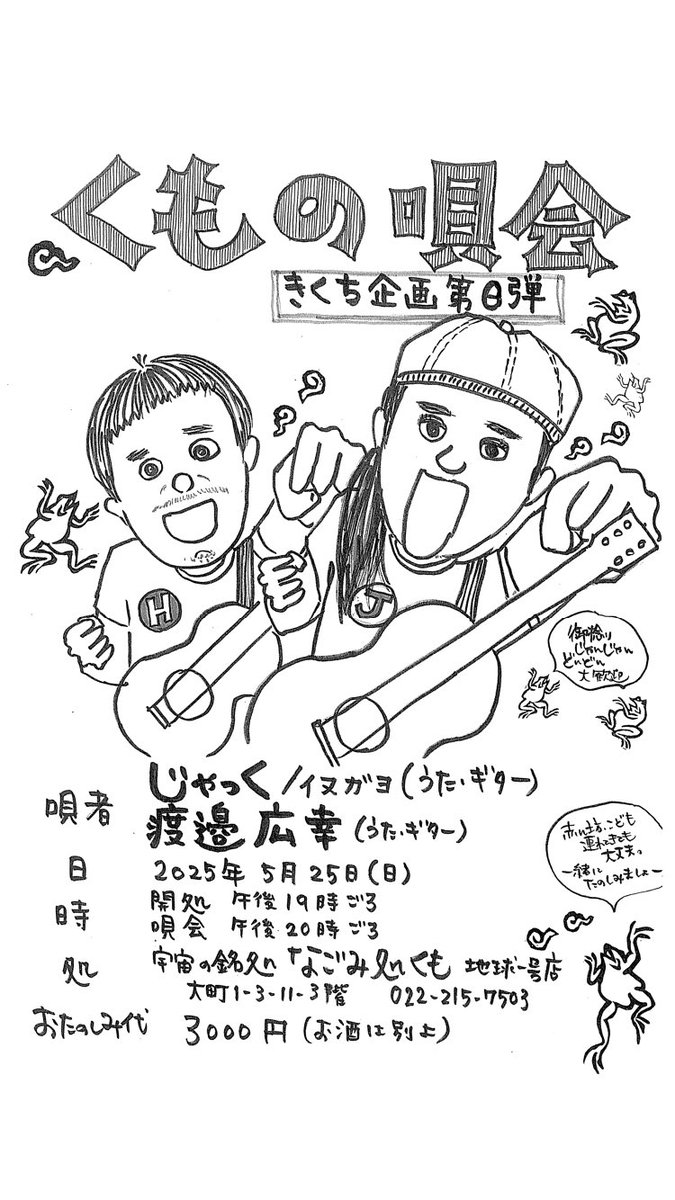 くもの唄会
きくち企画第8弾
H
J
御捻り
じゃんじゃん
どしどし
大歓迎
唄者 じゃっく/イヌガヨ(うた、ギター)
渡邉広幸(うた、ギター)
日 2025年 5月25日(日)
時 開処 午後19時ごろ
唄会 午後20時ごろ
処 宇宙の銘処 なごみ処くも 地球一号店
大町1-3-11-3階 022-215-7503
おたのしみ代 3000円(お酒は別よ)
赤ん坊、こども
連れてきても
大丈夫。
一緒に
たのしみましょー